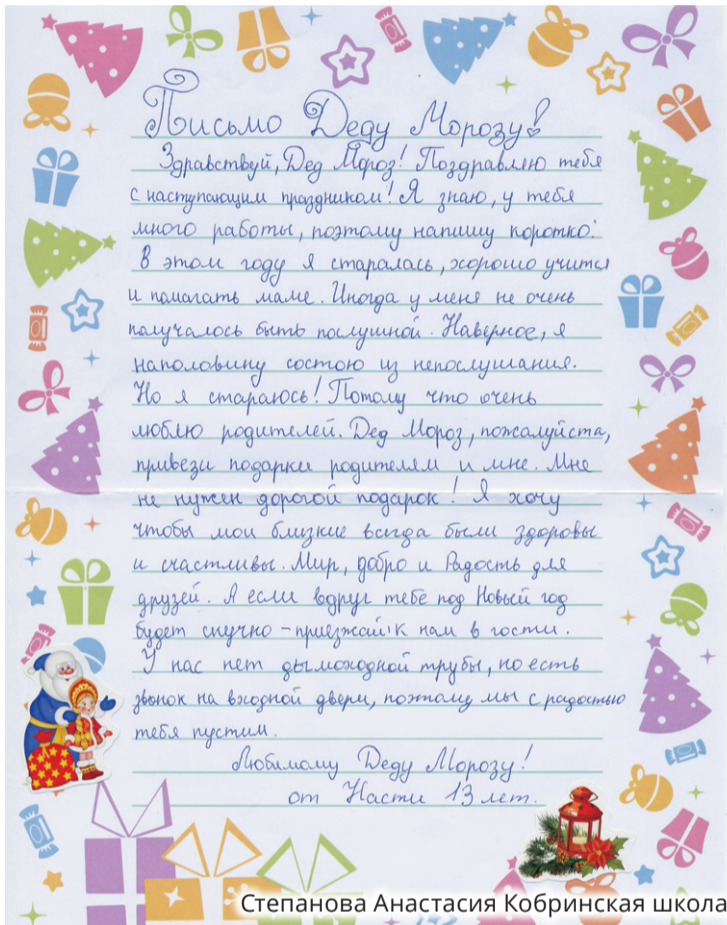 Письмо Деду Морозу!
Здравствуй, Дед Мороз! Поздравляю тебя
с наступающим праздником! Я знаю, у тебя
много работы, поэтому напишу коротко:
В этом году я старалась, хорошо учится
и помагать маме. Иногда у меня не очень
получалось быть послушной. Наверное, я
наполовину состою из непослушания.
Но я стараюсь! Потому что очень
люблю родителей. Дед Мороз, пожалуйста,
привези подарки родителям и мне. Мне
не нужен дорогой подарок! Я хочу
чтобы мои близкие всегда были здоровы
и счастливы. Мир, добро и Радость для
друзей. А если вдруг тебе под Новый год
будет скучно - приезжай к нам в гости.
У нас нет дымоходной трубы, но есть
звонок на входной двери, поэтому мы с радостью
тебя пустим.
Любимому Деду Морозу!
от Насти 13 лет.
Степанова Анастасия Кобринская школа